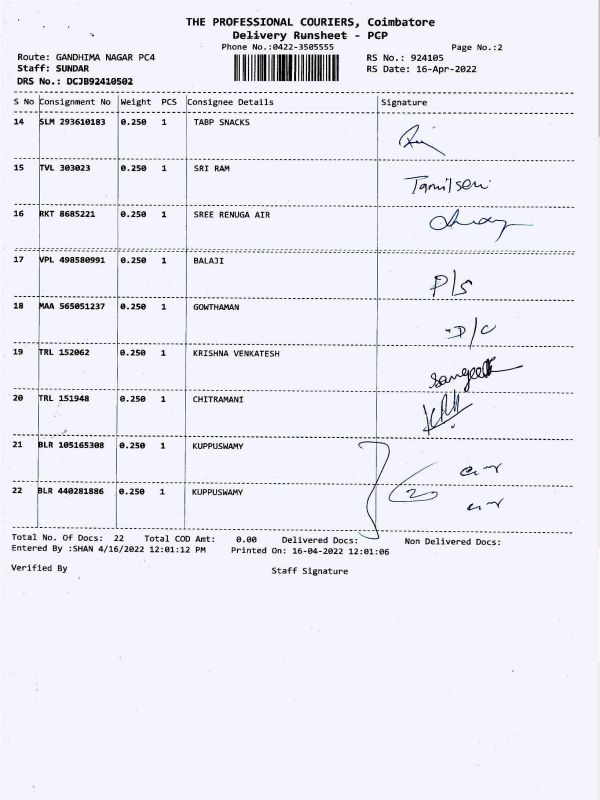 THE PROFESSIONAL COURIERS, Coimbatore
Delivery Runsheet - PCP
Phone No.:0422-3505555 Page No.:2
Route: GANDHIMA NAGAR PC4 RS No.: 924105
Staff: SUNDAR RS Date: 16-Apr-2022
DRS No.: DCJB92410502
S No Consignment No Weight PCS Consignee Details Signature
14 SLM 293610183 0.250 1 TABP SNACKS
15 TVL 303023 0.250 1 SRI RAM Tamilseni
16 RKT 8685221 0.250 1 SREE RENUGA AIR
17 VPL 498580991 0.250 1 BALAJI P/S
18 MAA 565051237 0.250 1 GOWTHAMAN D/C
19 TRL 152062 0.250 1 KRISHNA VENKATESH
20 TRL 151948 0.250 1 CHITRAMANI
21 BLR 105165308 0.250 1 KUPPUSWAMY
22 BLR 440281886 0.250 1 KUPPUSWAMY 2
Total No. Of Docs: 22 Total COD Amt: 0.00 Delivered Docs: Non Delivered Docs:
Entered By :SHAN 4/16/2022 12:01:12 PM Printed On: 16-04-2022 12:01:06
Verified By Staff Signature